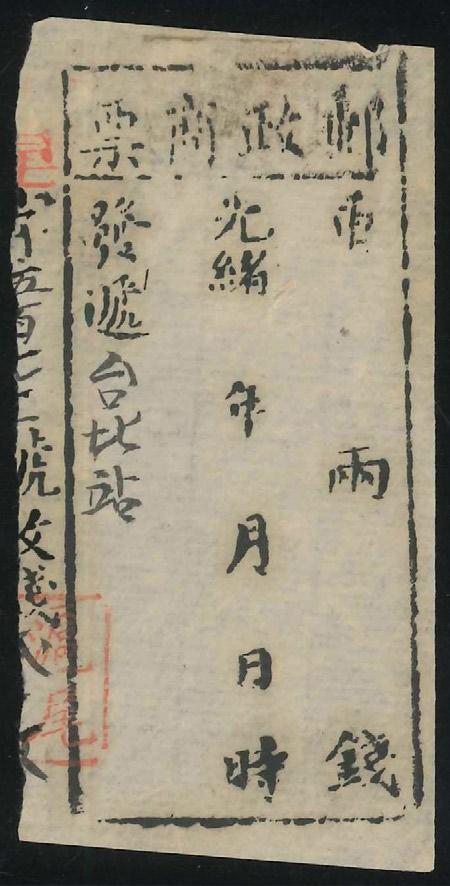 郵政商票
重 兩 錢
光緒 年 月 日 時
發遞台北站
字五百
號
滬尾